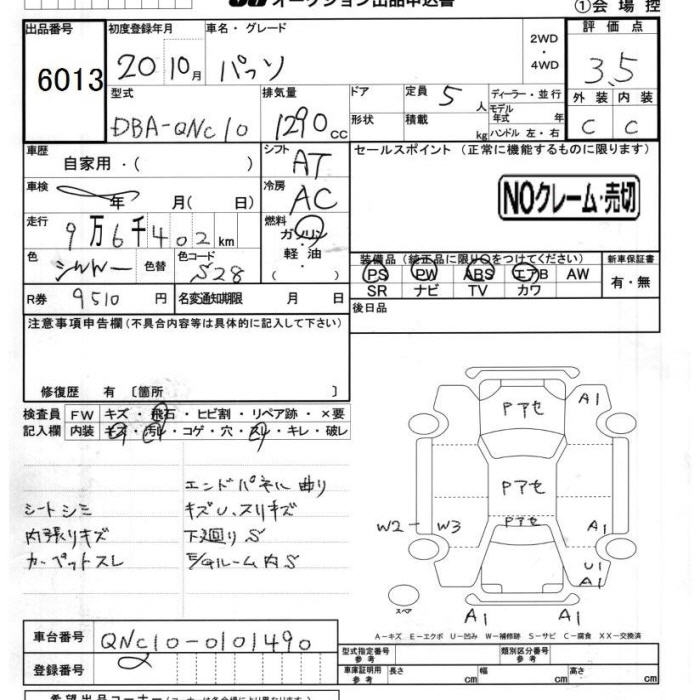 オークション出品申込書 ①会場控
出品番号 初度登録年月 車名・グレード 2WD・4WD 評価点
6013 20 10月 パッソ 3.5
型式 排気量 ドア 定員 5人 ディーラー・並行 外装 内装
DBA-QNC10 1290cc 形状 積載 kg モデル年式 年 ハンドル 左・右 C C
車歴 自家用・( ) シフト AT セールスポイント (正常に機能するものに限ります)
車検 年 月( 日) 冷房 AC NOクレーム・売切
走行 9万6千402km 燃料 ガソリン・軽油・( )
色 シルバー 色替 色コード S28 装備品 (純正品に限り〇をつけてください) 新車保証書
PS PW ABS エアB AW 有・無
SR ナビ TV カワ
R券 9510円 名変通知期限 月 日 後日品
注意事項申告欄 (不具合内容等は具体的に記入して下さい)
修復歴 有 〔箇所 〕
検査員 FW キズ・飛石・ヒビ割・リペア跡・×要
記入欄 内装 キズ・汚レ・コゲ・穴・スレ・キレ・破レ
エンドパネル曲り
シートシミ キズU、スリキズ
内張りキズ 下廻りS
カーペットスレ E/gルーム内S
Pアセ A1
Pアセ
Pアセ
W2 W3 A1
U1
A1
スペア A1 A1
A-キズ E-エクボ U-凹み W-補修跡 S-サビ C-腐食 XX-交換済
車台番号 QNC10-0101490
登録番号
型式指定番号 参考 類別区分番号 参考
車庫証明用 参考 長さ cm 幅 cm 高さ cm
希望出品コーナー